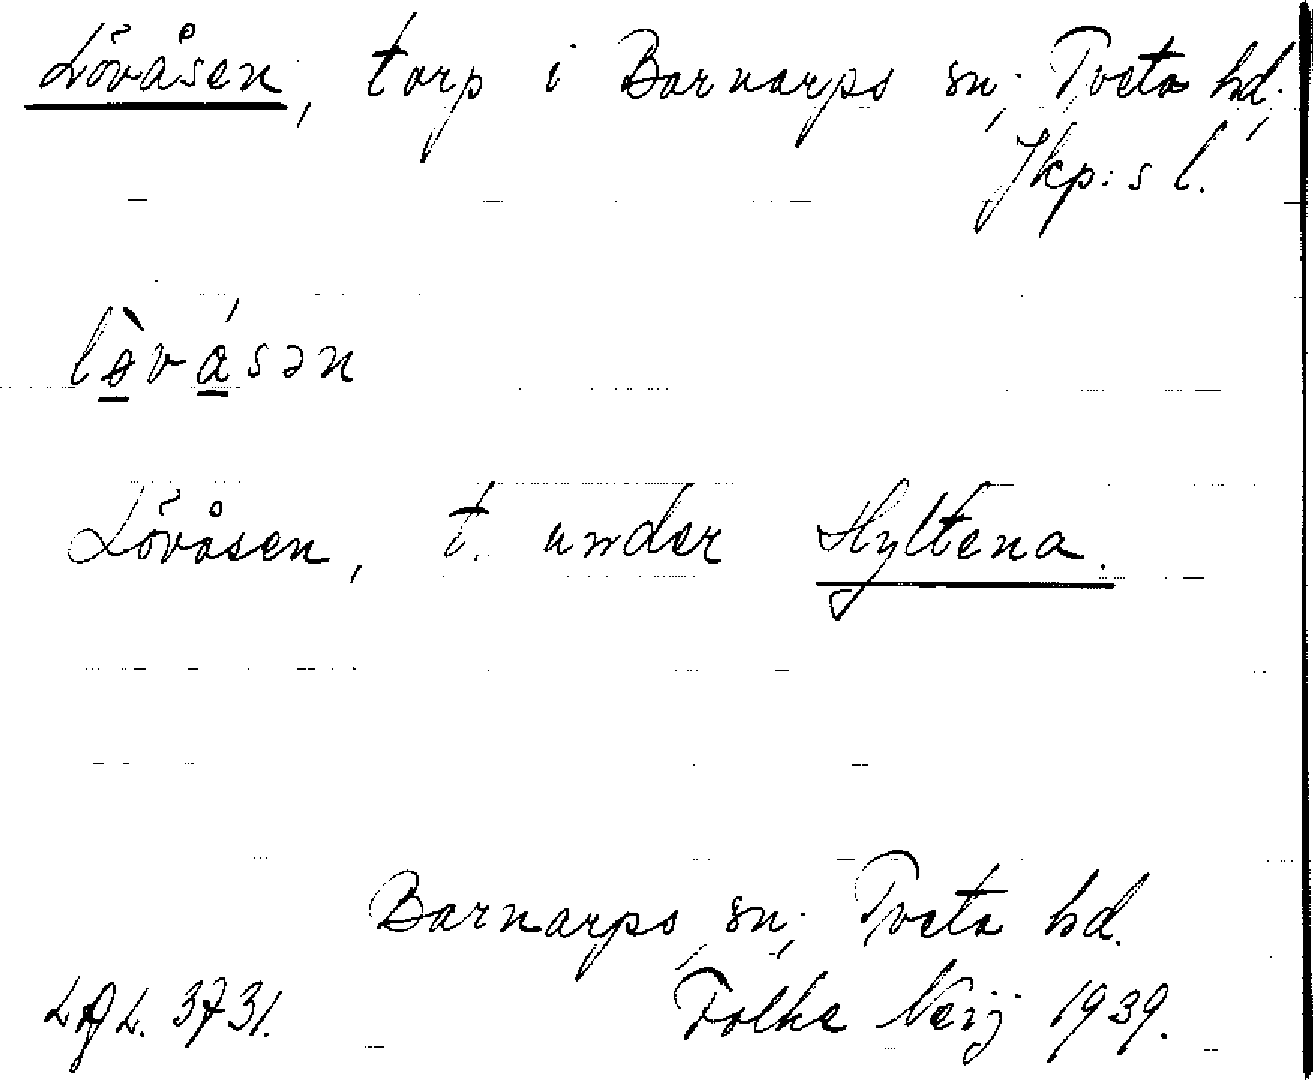 Lövåsen, torp i Barnarps sn, Tveta hd,
Jkp:s l.
lø̀vásən
Lövåsen, t. under Hyltena.
Barnarps sn, Tveta hd.
3731. Folke Neij 1939.